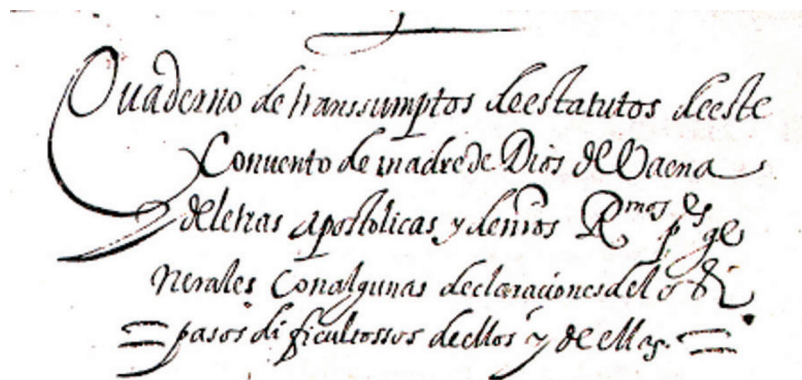 Quaderno de transsumptos de estatutos de este
Convento de madre de Dios de Vaena
de letras apostolicas y de nros Rmos pes ge
nerales con algunas declaraciones de
pasos dificultossos de ellos y de ellas.